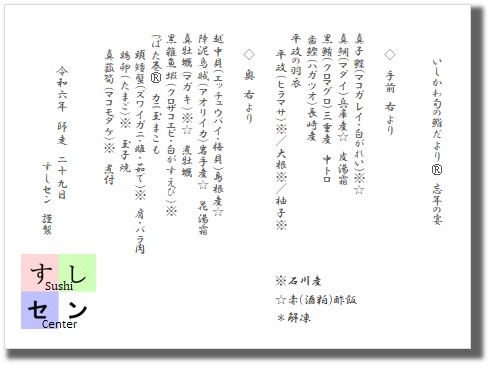 いしかわ旬の鮨だより® 忘年の宴
◇ 手前 右より
真子鰈(マコガレイ・白がれい)※☆
真鯛(マダイ)兵庫産☆ 皮湯霜
黒鮪(クロマグロ)三重産 中トロ
歯鰹(ハガツオ)長崎産
平政の羽衣
平政(ヒラマサ)※/大根※/柚子※
◇ 奥 右より
越中貝(エッチュウバイ・梅貝)島根産☆
障泥烏賊(アオリイカ)岩手産☆ 花湯霜
真牡蠣(マガキ)※☆ 煮牡蠣
黒雑魚蝦(クロザコエビ・白がすえび)※
つばた巻® カニ玉まこも
頭矮蟹(ズワイガニ・雌・茹で)※ 肩・バラ肉
鶏卵(たまご)※ 玉子焼
真菰筍(マコモダケ)※ 煮付
令和六年 師走 二十九日
すしセン 謹製
※石川産
☆赤(酒粕)酢飯
＊解凍
すし
Sushi
セン
Center